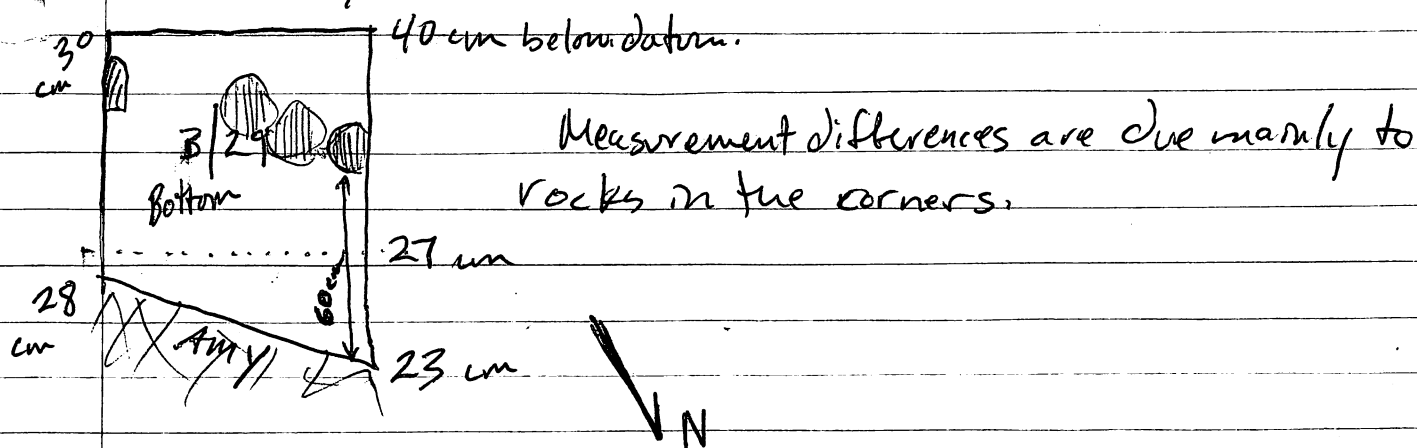 30 cm
40 cm below datum.
B/29
Bottom
Measurement differences are due mainly to
rocks in the corners.
27 cm
60 cm
28 cm
Amy
23 cm
N